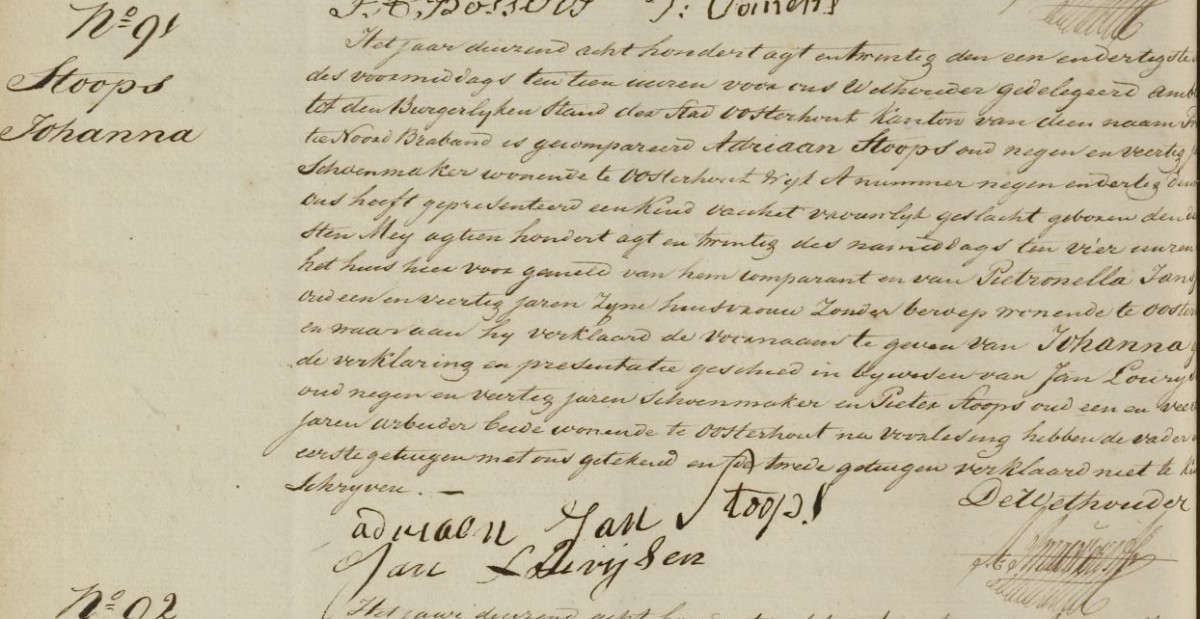 No 91
Stoops
Johanna
Het jaar duizend acht hondert agt en twintig den een en dertigste
des voormiddags ten tien uuren voor ons Wethouder gedelegeerd Amb
tot den Burgerlyken Stand der Stad Oosterhout Kanton van dien naam
tie Noord Braband is gecompareerd Adriaan Stoops oud negen en veertig
Schoenmaker wonende te Oosterhout Wyk A nummer negen en dertig
ons heeft gepresenteerd een Kind van het vrouwlyk geslacht geboren den
sten Mey agtien hondert agt en twintig des namiddags ten vier uuren
het huis hier voor gemeld van hem comparant en van Pietronella Jans
oud een en veertig jaren Zyne huisvrouw Zonder beroep wonende te Ooster
en waar aan hy verklaard de voornaam te geven van Johanna
de verklaring en presentatie geschied in bywesen van Jan Lowys
oud negen en veertig jaren Schoenmaker en Pieter Stoops oud een en veer
jaren arbeider beide wonende te Oosterhout na voorlesing hebben de vader
eerste getuigen met ons getekend en de twede getuigen verklaard niet te
Schryven. —
De Wethouder
adriaen Jan Stoops
Jan
No 92
Het jaar duizend acht